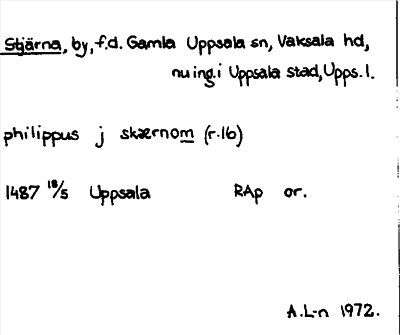 Stjärna, by, f.d. Gamla Uppsala sn, Vaksala hd,
nu ing. i Uppsala stad, Upps. l.
philippus j skærnom (r.16)
1487 18/5 Uppsala RAp or.
A.L-n 1972.